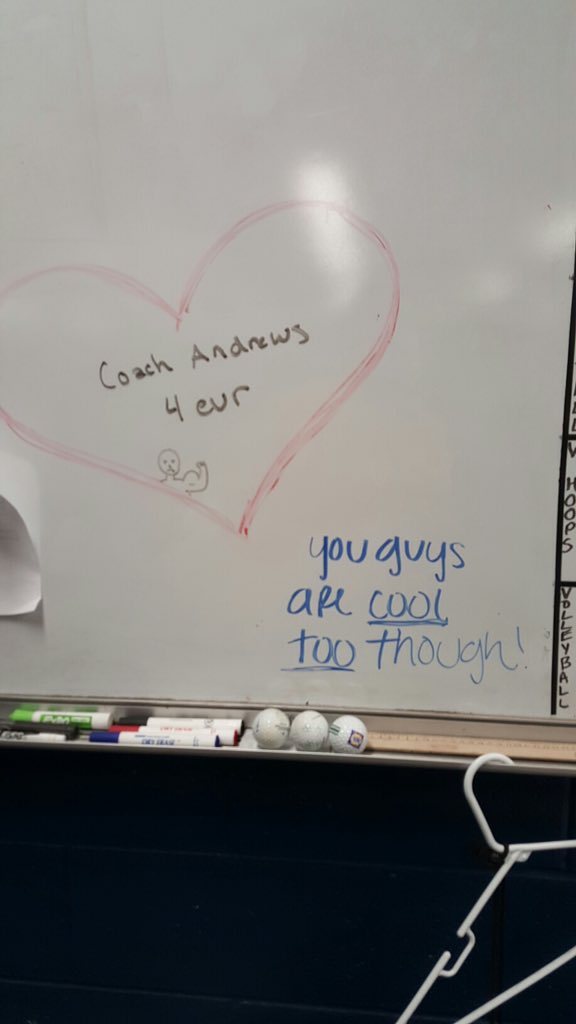 Coach Andrews
4 evr
you guys
are cool
too though!
V HOOPS
VOLLEYBALL
EXPO
DRY ERASE